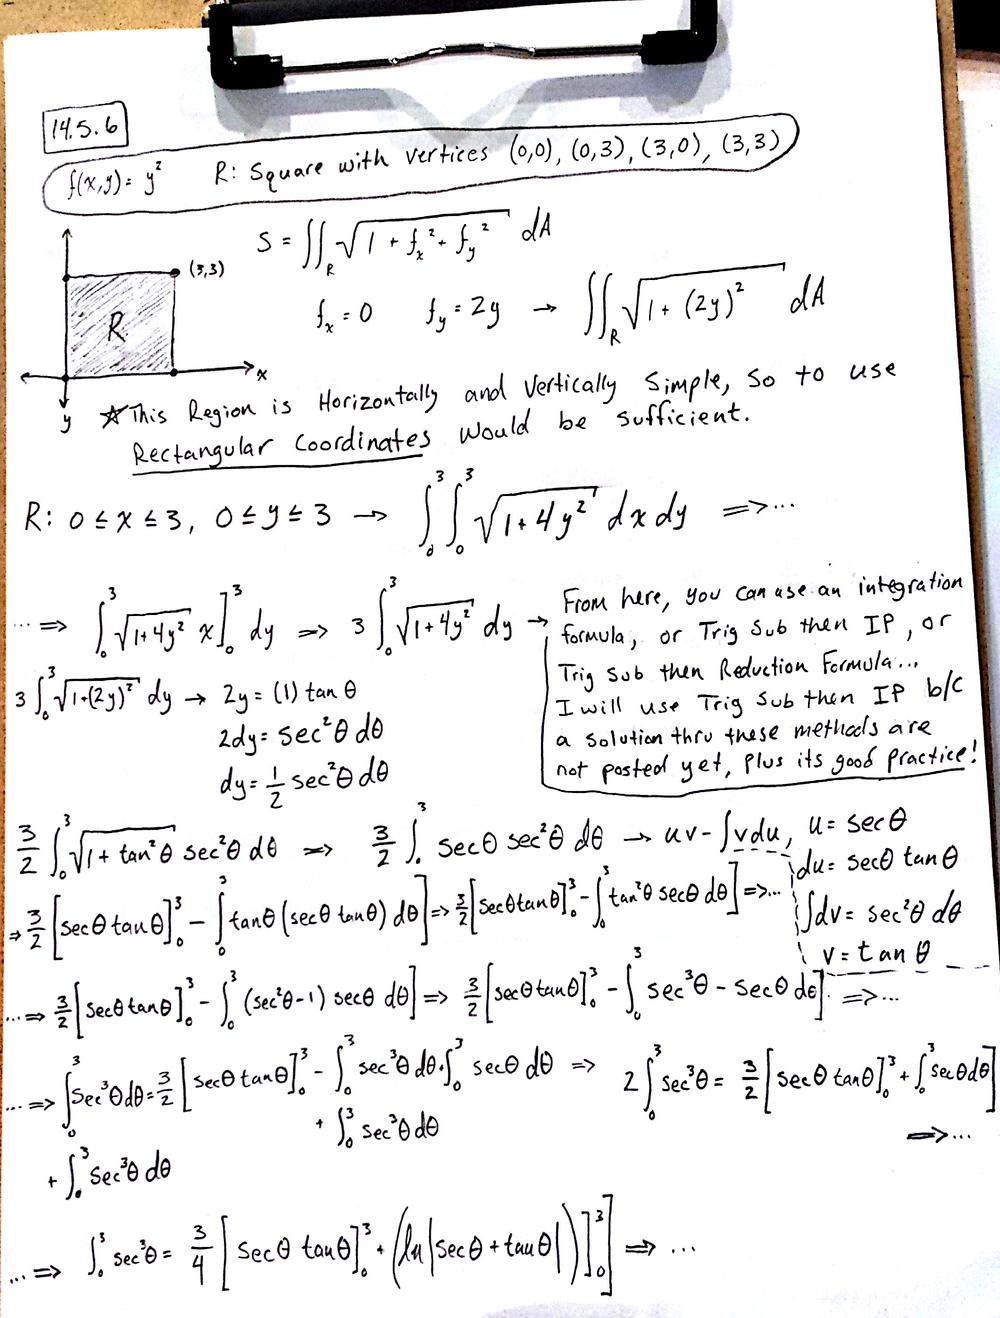 14.5.6
f(x,y) = y²    R: Square with vertices (0,0), (0,3), (3,0), (3,3)
S = ∬_R √(1 + f_x² + f_y²) dA
(3,3)
R
x
y
f_x = 0    f_y = 2y → ∬_R √(1 + (2y)²) dA
☆This Region is Horizontally and Vertically Simple, so to use
Rectangular Coordinates would be sufficient.
R: 0 ≤ x ≤ 3, 0 ≤ y ≤ 3 → ∫₀³ ∫₀³ √(1+4y²) dx dy ⇒ ...
... ⇒ ∫₀³ √(1+4y²) x]₀³ dy ⇒ 3 ∫₀³ √(1+4y²) dy →
From here, you can use an integration
formula, or Trig Sub then IP, or
Trig Sub then Reduction Formula...
I will use Trig Sub then IP b/c
a solution thru these methods are
not posted yet, plus its good practice!
3 ∫₀³ √(1+(2y)²) dy → 2y = (1) tan θ
2dy = sec²θ dθ
dy = 1/2 sec²θ dθ
3/2 ∫₀³ √(1 + tan²θ) sec²θ dθ ⇒ 3/2 ∫₀³ secθ sec²θ dθ → uv - ∫vdu, u = secθ
du = secθ tanθ
∫dv = sec²θ dθ
v = tan θ
⇒ 3/2 [secθ tanθ]₀³ - ∫₀³ tanθ (secθ tanθ) dθ] ⇒ 3/2 [secθtanθ]₀³ - ∫₀³ tan²θ secθ dθ] ⇒ ...
... ⇒ 3/2 [secθtanθ]₀³ - ∫₀³ (sec²θ-1) secθ dθ] ⇒ 3/2 [secθtanθ]₀³ - ∫₀³ sec³θ - secθ dθ] ⇒ ...
... ⇒ ∫₀³ sec³θ dθ = 3/2 [secθ tanθ]₀³ - ∫₀³ sec³θ dθ + ∫₀³ secθ dθ ⇒ 2 ∫₀³ sec³θ = 3/2 [secθ tanθ]₀³ + ∫₀³ secθdθ]
+ ∫₀³ sec³θ dθ
⇒ ...
+ ∫₀³ sec³θ dθ
... ⇒ ∫₀³ sec³θ = 3/4 [secθ tanθ]₀³ + (ln|secθ + tanθ|)]₀³] ⇒ ...